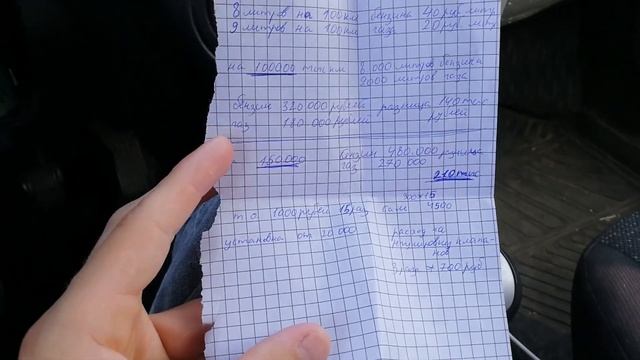 8 литров на 100км бензина 40 руб литр
9 литров на 100км газа 20 руб литр
на 100000 тыс км 8 000 литров бензина
9000 литров газа
бензин 320 000 рублей разница 140 тыс
газ 180 000 рублей рублей
150.000 бензин 480.000 разница
газ 270 000
210 тыс
300×15
т о 1000 рублей 15 раз 4500
установка от 20 000 расход на
регулировку клапа-
нов
700 руб